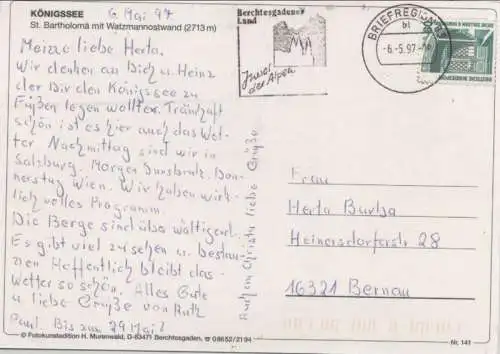 KÖNIGSSEE
St. Bartholomä mit Watzmannostwand (2713 m)
6 Mai 97.
Meine liebe Herta.
Wir denken an Dich u. Heinz
der Dir den Königsee zu
Füßen legen wollte. Traumhaft
schön ist es hier auch das Wet-
ter Nachmittag sind wir in
Salzburg. Morgen Innsbruck. Don-
nerstag Wien. Wir haben wirk-
lich volles Programm.
Die Berge sind überwältigend.
Es gibt viel zu sehen u. bestau-
nen Hoffentlich bleibt das
Wetter so schön. Alles Gute
u liebe Grüße von Ruth
Paul. Bis zum 29 Mai!
Auch an Christa liebe Grüße
© Fotokunstedition H. Murenwald, D-83471 Berchtesgaden, ☎ 08652/2194
Berchtesgadener
Land
Juwel
der Alpen
BRIEFREGION
bl
-6.-5.97
Frau
Herta Barba
Heinersdorferstr 28
16321 Bernau
Nr. 141